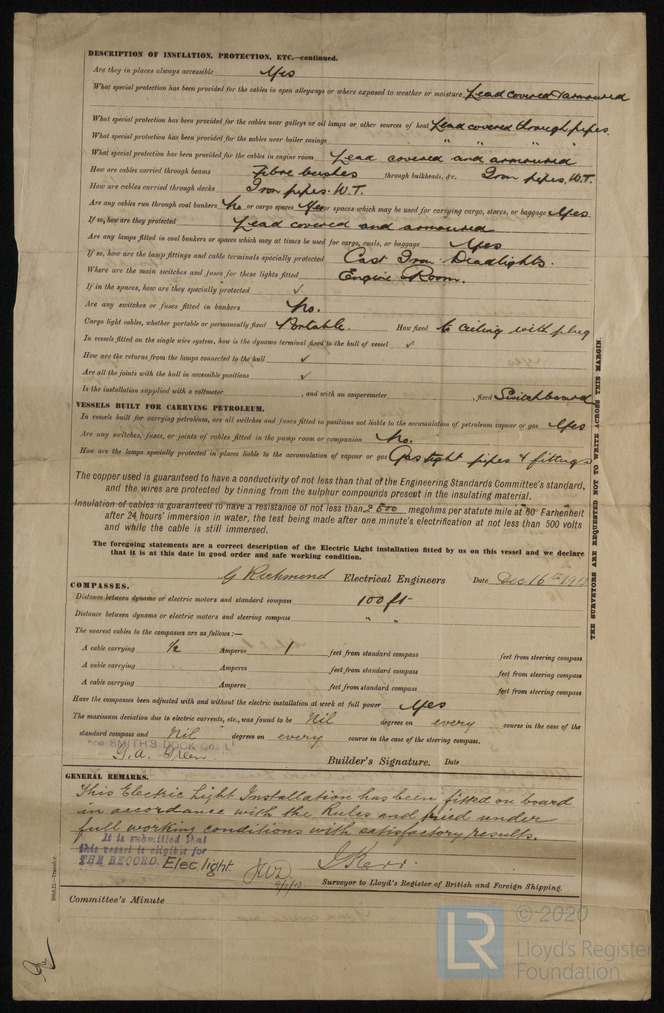 DESCRIPTION OF INSULATION, PROTECTION, ETC.—continued.
Are they in places always accessible Yes
What special protection has been provided for the cables in open alleyways or where exposed to weather or moisture Lead covered & armoured
What special protection has been provided for the cables near galleys or oil lamps or other sources of heat Lead covered through pipes.
What special protection has been provided for the cables near boiler casings " " "
What special protection has been provided for the cables in engine room Lead covered and armoured
How are cables carried through beams Fibre bushes through bulkheads, &c. Iron pipes. W.T.
How are cables carried through decks Iron pipes. W.T.
Are any cables run through coal bunkers No or cargo spaces Yes or spaces which may be used for carrying cargo, stores, or baggage Yes
If so, how are they protected Lead covered and armoured
Are any lamps fitted in coal bunkers or spaces which may at times be used for cargo, coals, or baggage Yes
If so, how are the lamp fittings and cable terminals specially protected Cast Iron Deadlights.
Where are the main switches and fuses for these lights fitted Engine Room.
If in the spaces, how are they specially protected ✓
Are any switches or fuses fitted in bunkers No.
Cargo light cables, whether portable or permanently fixed Portable. How fixed to ceiling with plug
In vessels fitted on the single wire system, how is the dynamo terminal fixed to the hull of vessel ✓
How are the returns from the lamps connected to the hull ✓
Are all the joints with the hull in accessible positions ✓
Is the installation supplied with a voltmeter , and with an amperemeter , fixed Switchboard
VESSELS BUILT FOR CARRYING PETROLEUM.
In vessels built for carrying petroleum, are all switches and fuses fitted in positions not liable to the accumulation of petroleum vapour or gas Yes
Are any switches, fuses, or joints of cables fitted in the pump room or companion No.
How are the lamps specially protected in places liable to the accumulation of vapour or gas Gas tight pipes & fittings
The copper used is guaranteed to have a conductivity of not less than that of the Engineering Standards Committee's standard,
and the wires are protected by tinning from the sulphur compounds present in the insulating material.
Insulation of cables is guaranteed to have a resistance of not less than 2500 megohms per statute mile at 60° Farhenheit
after 24 hours' immersion in water, the test being made after one minute's electrification at not less than 500 volts
and while the cable is still immersed.
The foregoing statements are a correct description of the Electric Light installation fitted by us on this vessel and we declare
that it is at this date in good order and safe working condition.
G Richmond Electrical Engineers Date Dec 16th
COMPASSES.
Distance between dynamo or electric motors and standard compass 100 ft
Distance between dynamo or electric motors and steering compass " "
The nearest cables to the compasses are as follows:—
A cable carrying ½ Amperes 1 feet from standard compass feet from steering compass
A cable carrying Amperes feet from standard compass feet from steering compass
A cable carrying Amperes feet from standard compass feet from steering compass
Have the compasses been adjusted with and without the electric installation at work at full power Yes
The maximum deviation due to electric currents, etc., was found to be Nil degrees on every course in the case of the
standard compass and Nil degrees on every course in the case of the steering compass.
FOR SMITH'S DOCK CO. L
Builder's Signature. Date
GENERAL REMARKS.
This Electric Light Installation has been fitted on board
in accordance with the Rules and tried under
full working conditions with satisfactory results.
It is submitted that
this vessel is eligible for
THE RECORD. Elec. light.
J Kerr.
Surveyor to Lloyd's Register of British and Foreign Shipping.
Committee's Minute
THE SURVEYORS ARE REQUESTED NOT TO WRITE ACROSS THIS MARGIN.
LR
© 2020
Lloyd's Register
Foundation